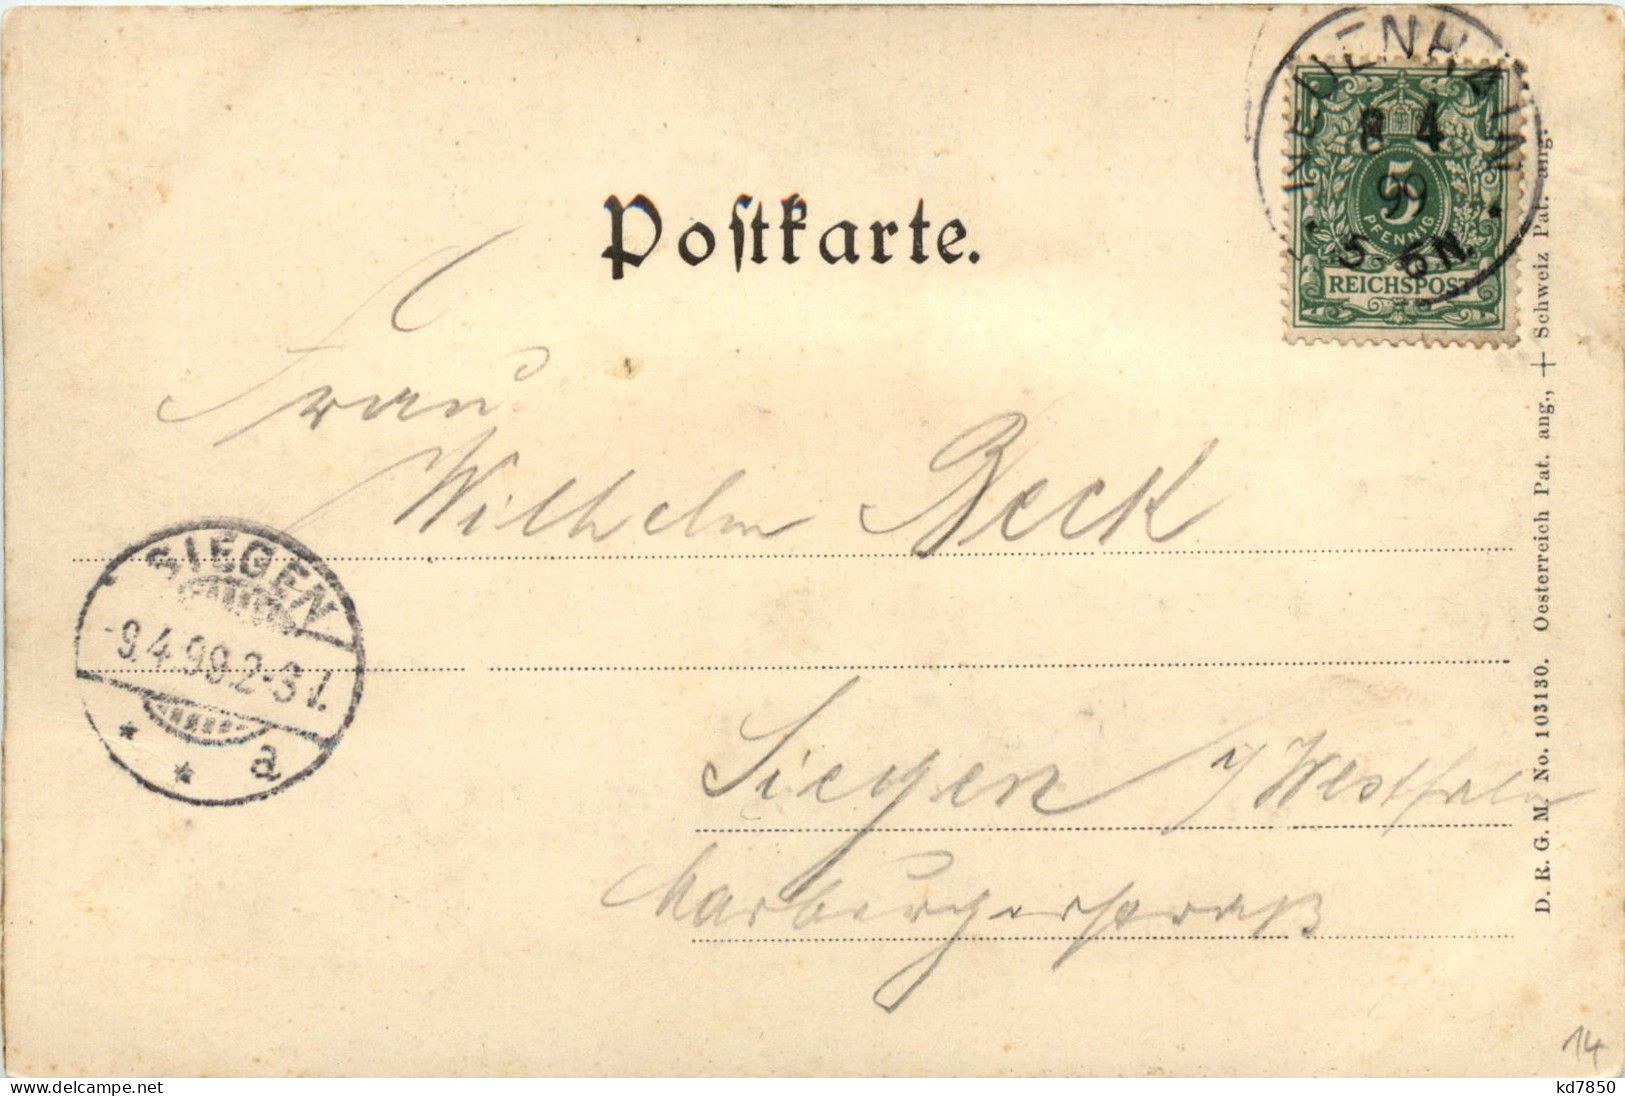 NEUENHAIN
8 4
99
5-6N.
5
PFENNIG
REICHSPOST
Postkarte.
Frau
Wilhelm Beck
SIEGEN
-9.4.99.2-3 V.
* * a
Siegen i/Westfalen
Marburgerstraß
D. R. G. M. No. 103130. Oesterreich Pat. ang., + Schweiz Pat. ang.
14
kd7850